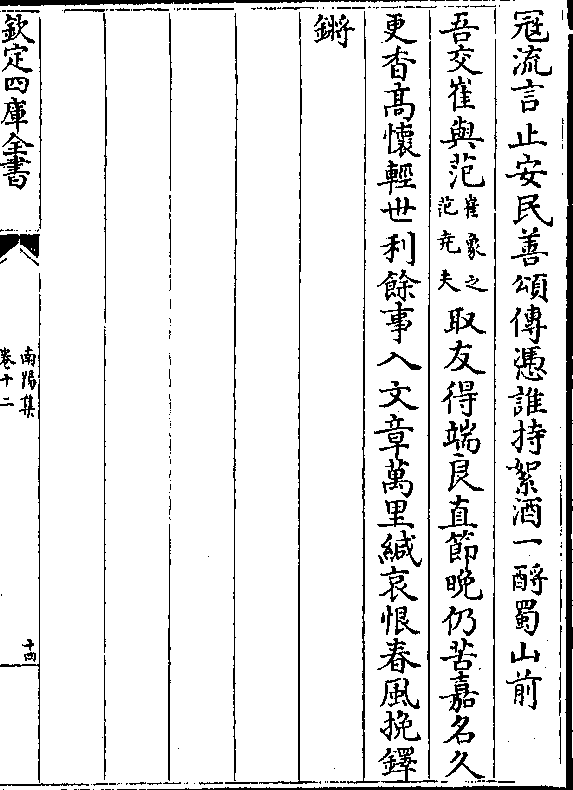 冦流言止安民善頌傳憑誰持絮酒一酹蜀山前
吾交崔與范崔象之范堯夫取友得端良直節晚仍苦嘉名久
更香髙懷輕世利餘事入文章萬里緘哀恨春風挽鐸
鏘
欽定四庫全書
南陽集
卷十二
十四